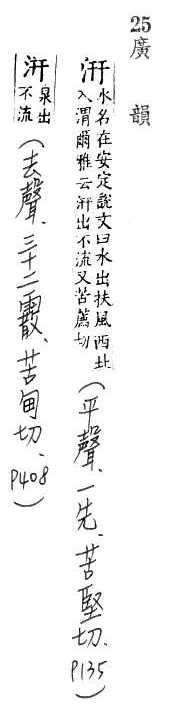 25 廣韻
汧 水名在安定說文曰水出扶風西北
入渭爾雅云汧出不流又苦薦切
(平聲、一先、苦堅切、P135)
汧 泉出
不流
(去聲、三十二霰、苦甸切、P408)